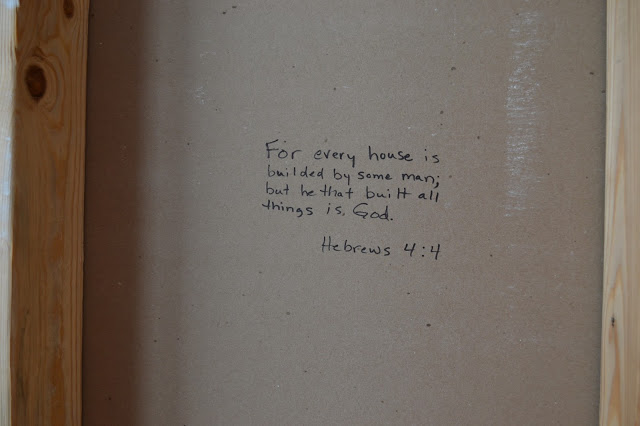 For every house is
builded by some man;
but he that built all
things is. God.
Hebrews 4:4